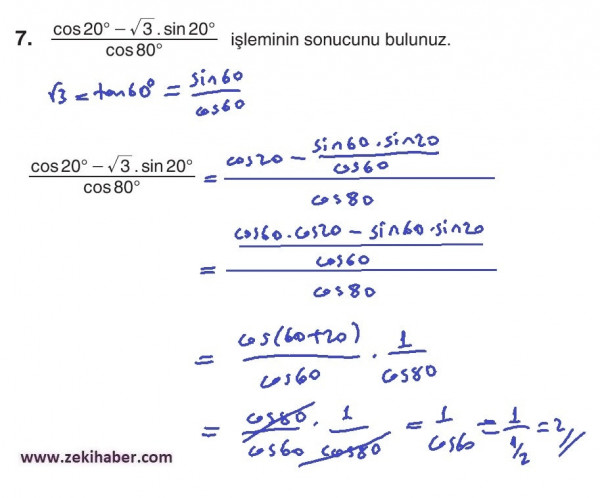 7. (cos20° − √3 . sin20°) / cos80° işleminin sonucunu bulunuz.
√3 = tan60° = sin60 / cos60
(cos20° − √3 . sin20°) / cos80° = (cos20 − (sin60 . sin20) / cos60) / cos80
= ((cos60 . cos20 − sin60 . sin20) / cos60) / cos80
= cos(60+20) / cos60 . 1 / cos80
= cos80 / cos60 . 1 / cos80 = 1 / cos60 = 1 / 1/2 = 2 //
www.zekihaber.com